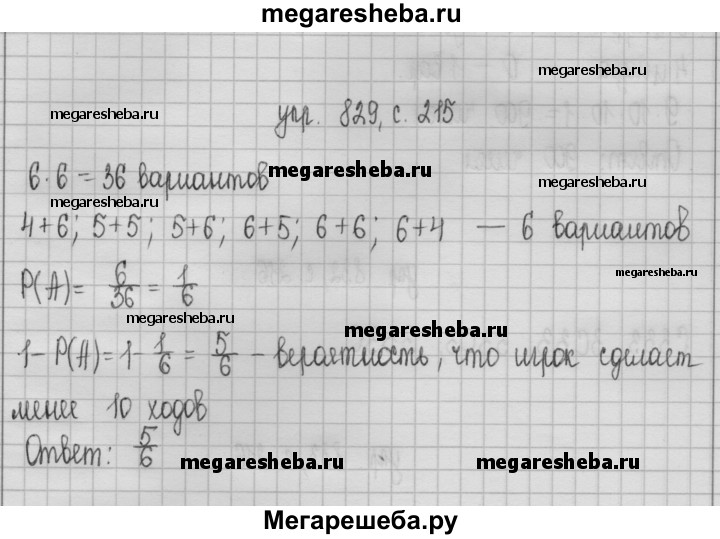 megaresheba.ru
megaresheba.ru
megaresheba.ru
упр. 829, с. 215
6·6=36 вариантов megaresheba.ru
megaresheba.ru
4+6; 5+5; 5+6; 6+5; 6+6; 6+4 — 6 вариантов
megaresheba.ru
P(A)= 6/36 = 1/6
megaresheba.ru
megaresheba.ru
1-P(A)=1-1/6=5/6 - вероятность, что игрок сделает
менее 10 ходов
Ответ: 5/6
megaresheba.ru
megaresheba.ru
Мегарешеба.ру